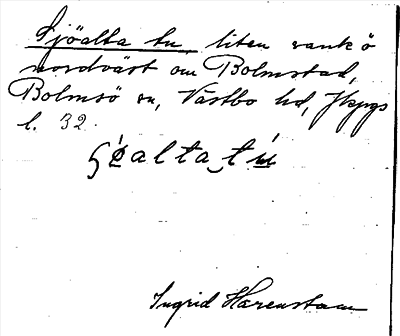 Sjöalta tu liten vank ö
nordväst om Bolmstad,
Bolmsö sn, Västbo hd, Jkpgs
l. 32.
Ingrid Harenstam